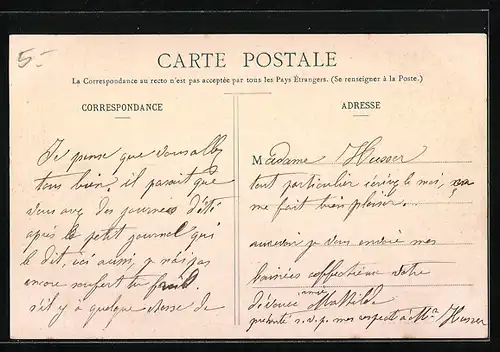 5-
CARTE POSTALE
La Correspondance au recto n'est pas acceptée par tous les Pays Étrangers. (Se renseigner à la Poste.)
CORRESPONDANCE
Je pense que vous allez
tous bien. il parait que
vous avez des journées d'été
après le petit journal qui
le dit, ici aussi, je n'ai pas
encore souffert du froid.
s'il y a quelque chose de
ADRESSE
Madame Husser
tout particulier écrivez le moi, ça
me fait bien plaisir...
aurevoir je vous envoie mes
baisers affectueux votre
amie
dévouée Mathilde
présenté s.v.p. mes respect à Mr Husser